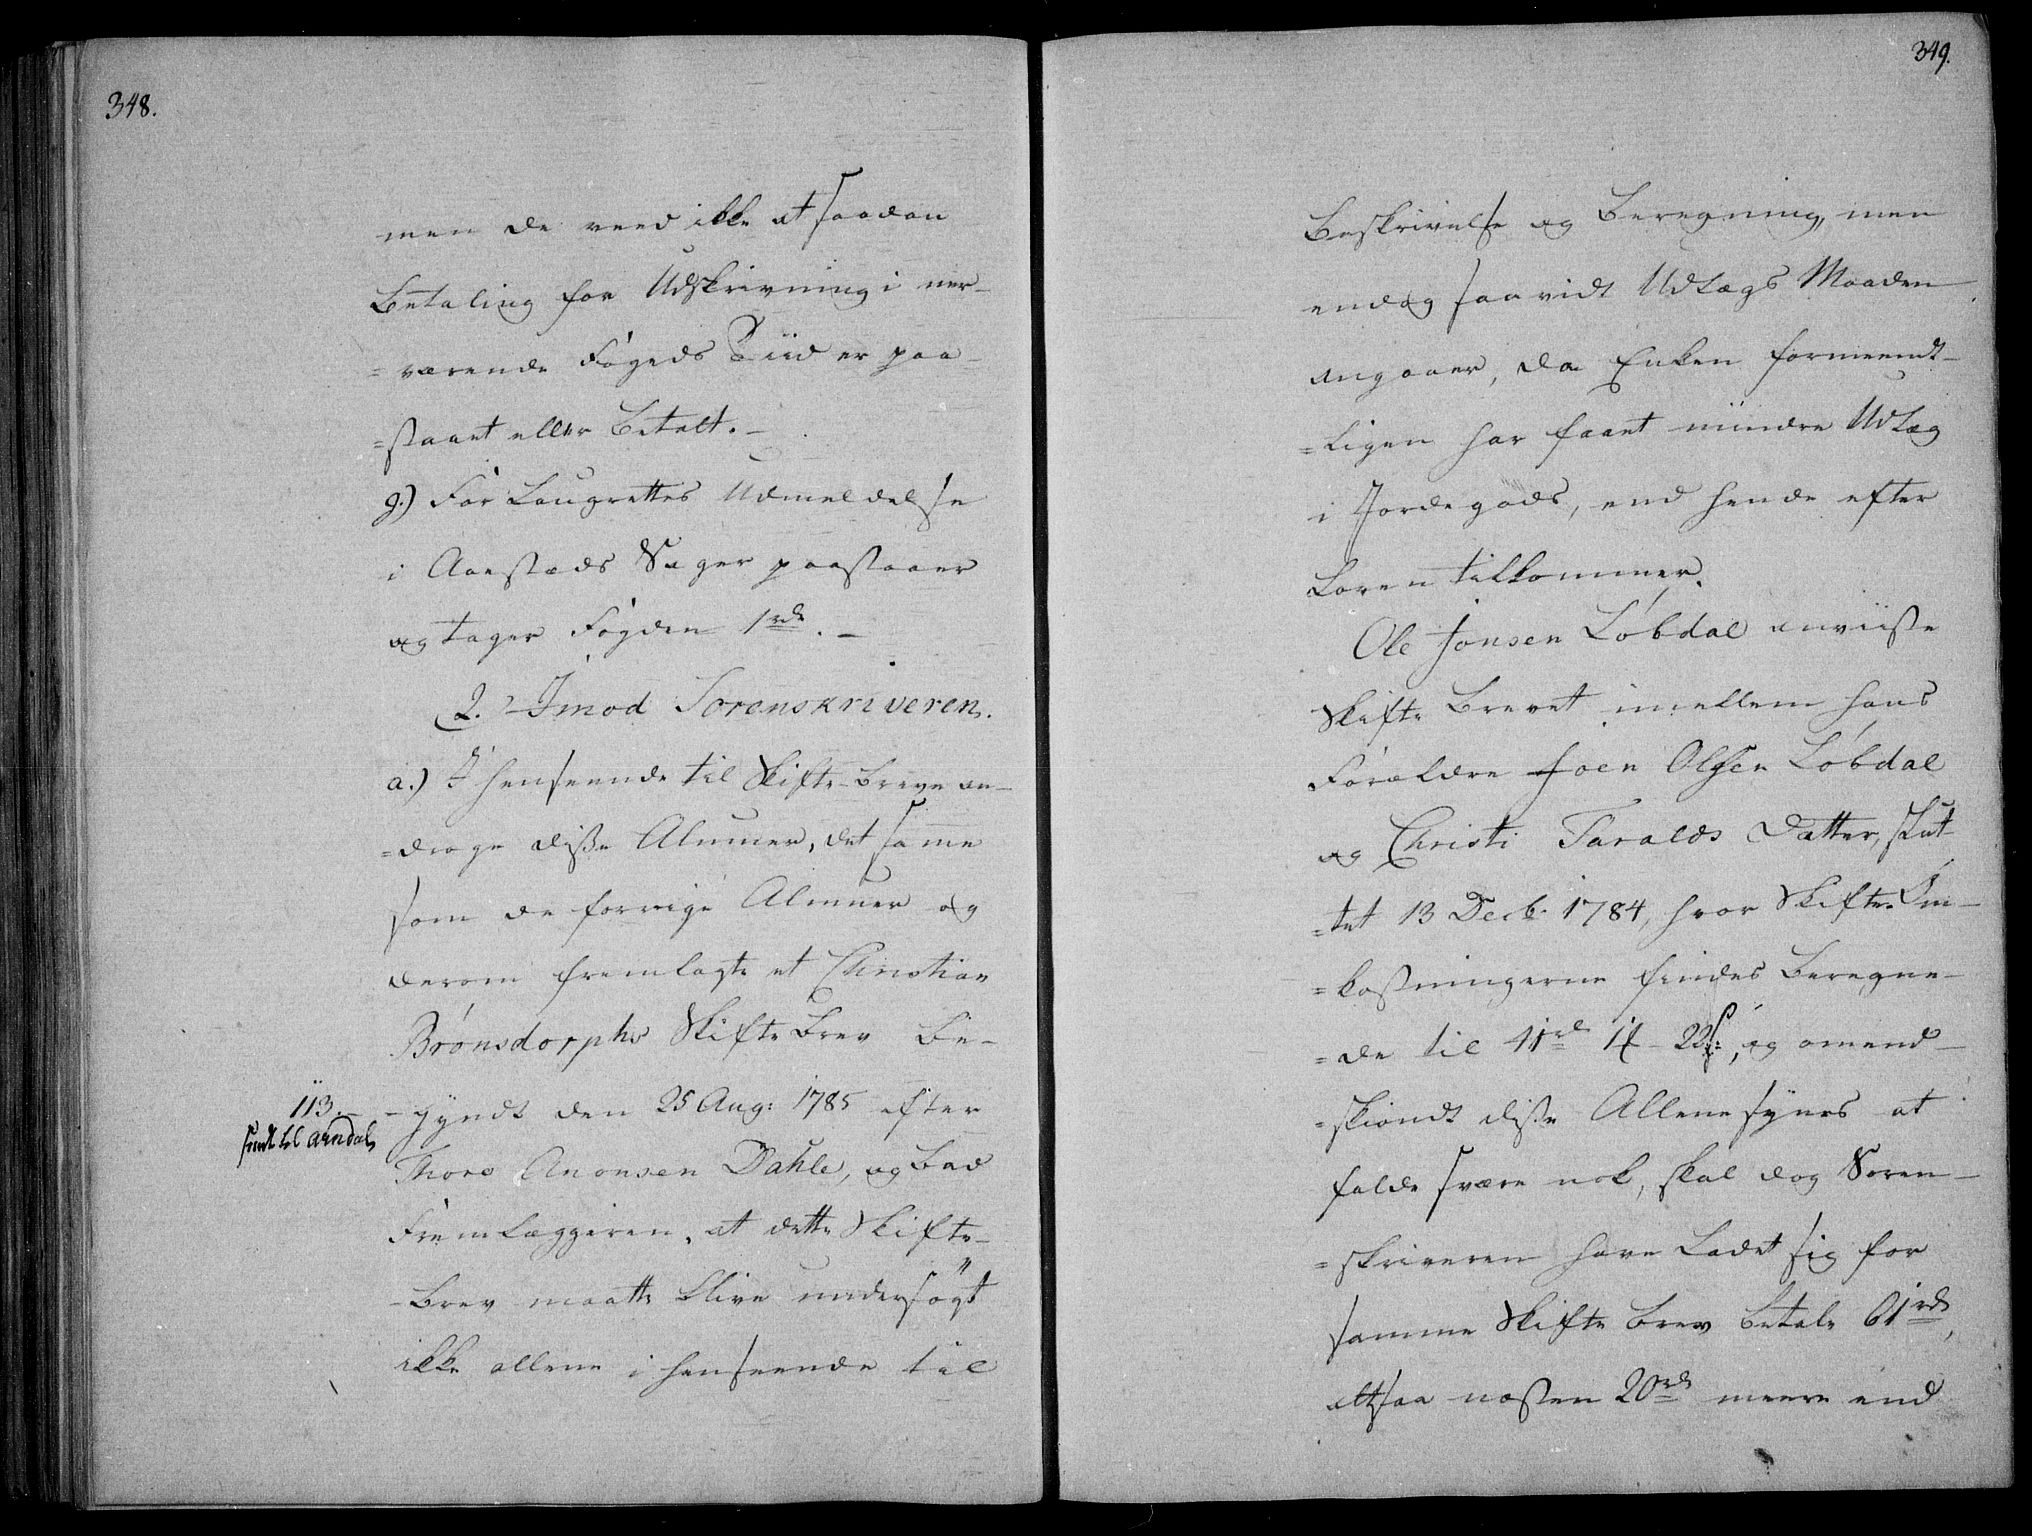 348.
men de veed ikke at saadan
Betaling for Udskrivning i nær-
=værende Fogeds Tiid er paa-
=staaet eller Betalt. -
g.) For Laugrettes Udmeldelse
i Aaesteds Sager paastaaer
og tager Fogden 1 rd. -
2. Imod Sorenskriveren.
a.) I henseende til Skifte-breve an-
=droge disse Almuer, det samme
som de forrige Almuer og
derom fremlagte et Christian
Brønsdorphs Skifte Brev be-
-gyndt den 25 Aug: 1785 efter
113.
sendt til Arndal
Thore Anonsen Dahle, og bad
Fremlæggeren, at dette Skifte-
-Brev maatte blive undersøgt
ikke allene i henseende til
349.
Beskrivelse og Beregning, men
endog saavidt Udlægs Maaden
angaaer, da Enken formeendt-
=ligen har faaet mindre Udlæg
i Jordegods, end hende efter
Loven tilkommer.
Ole Jonsen Løbdal anviiste
Skifte Brevet imellem hans
Forældre Joen Olsen Løbdal
og Christi Taralds Datter, slut-
=tet 13 Decb. 1784, hvor Skifte Om-
=kostningerne findes Beregne-
=de til 41 rd 1 # 22 s:, og omend-
=skiøndt disse Allene synes at
falde svære nok, skal dog Soren-
=skriveren have Ladet sig for
samme Skifte brev betale 61 rd,
altsaa næsten 20 rd meere end